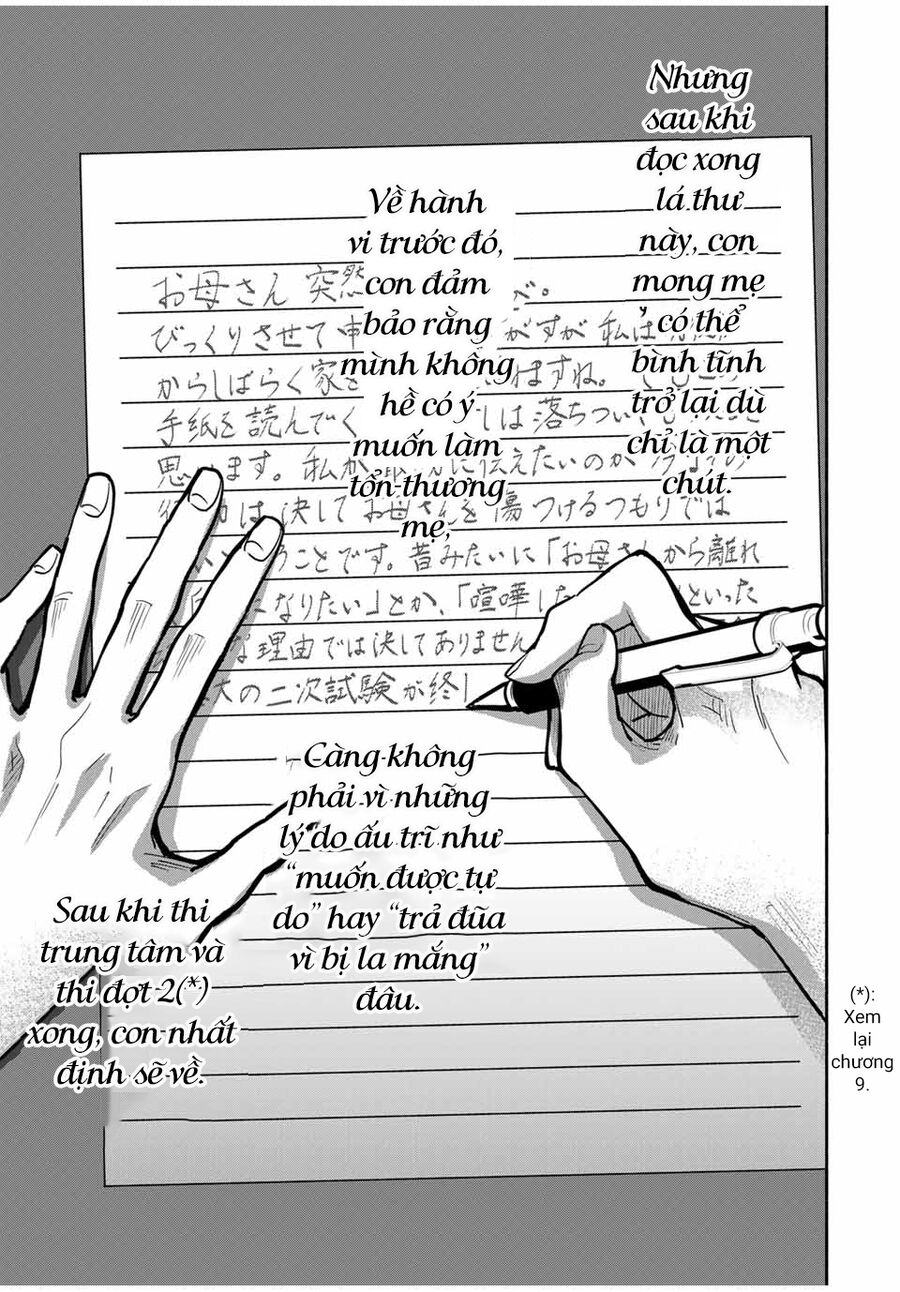 Nhưng
sau khi
đọc xong
lá thư
này, con
mong mẹ
có thể
bình tĩnh
trở lại dù
chỉ là một
chút.
Về hành
vi trước đó,
con đảm
bảo rằng
mình không
hề có ý
muốn làm
tổn thương
mẹ,
Càng không
phải vì những
lý do ấu trĩ như
“muốn được tự
do” hay “trả đũa
vì bị la mắng”
đâu.
Sau khi thi
trung tâm và
thi đợt 2(*)
xong, con nhất
định sẽ về.
(*):
Xem
lại
chương
9.
お母さん 突然
びっくりさせて 申 がすが 私は
からしばらく家を ますね。
手紙を読んでく しは落ちつい
思います。私が に伝えたいのが
は決してお母さんを傷つけるつもりでは
ことです。昔みたいに「お母さんから離れ
になりたい」とか、「喧嘩した といった
な理由では決してありません
大の二次試験が終